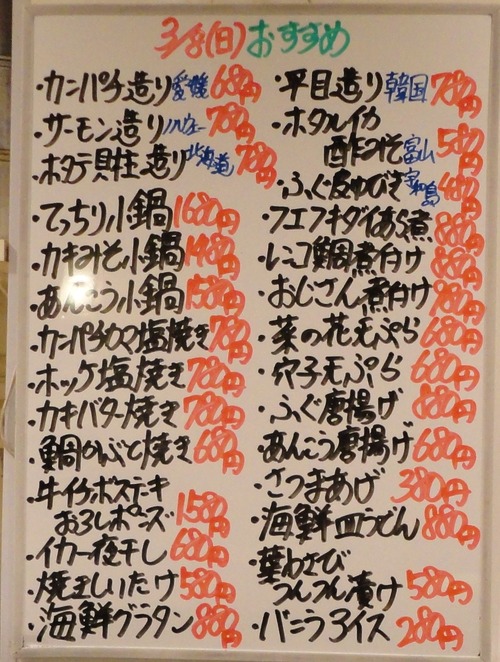 3/8(日)おすすめ
・カンパチ造り愛媛 680円
・サーモン造りノルウェー 780円
・ホタテ貝柱造り北海道 780円
・てっちり小鍋 1680円
・カキみそ小鍋 1480円
・あんこう小鍋 1580円
・カンパチカマ塩焼き 780円
・ホッケ塩焼き 780円
・カキバター焼き 780円
・鯛かぶと焼き 680円
・牛イチボステーキ
おろしポンズ 1580円
・イカ一夜干し 680円
・焼きしいたけ 580円
・海鮮グラタン 880円
・平目造り韓国 780円
・ホタルイカ
酢みそ富山 580円
・ふぐ皮ゆびき 480円
・フエフキダイあら煮 880円
・レンコ鯛煮付け 880円
・おじさん煮付け 980円
・菜の花天ぷら 680円
・穴子天ぷら 680円
・ふぐ唐揚げ 880円
・あんこう唐揚げ 680円
・さつまあげ 380円
・海鮮皿うどん 880円
・葉わさび
つんつん漬け 580円
・バニラアイス 280円